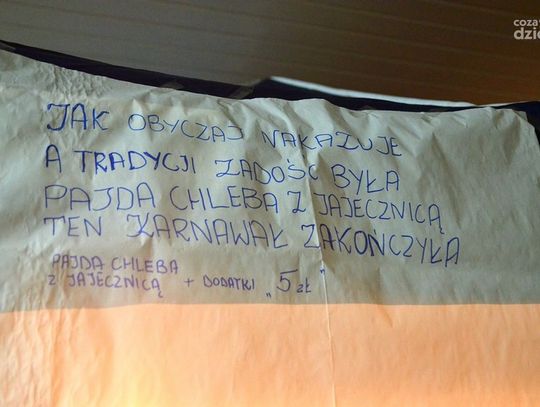 coza
dzień
JAK OBYCZAJ NAKAZUJE
A TRADYCJI ZADOŚĆ BYŁA
PAJDA CHLEBA Z JAJECZNICĄ
TEN KARNAWAŁ ZAKOŃCZYŁA
PAJDA CHLEBA
Z JAJECZNICĄ + DODATKI „5 zł"